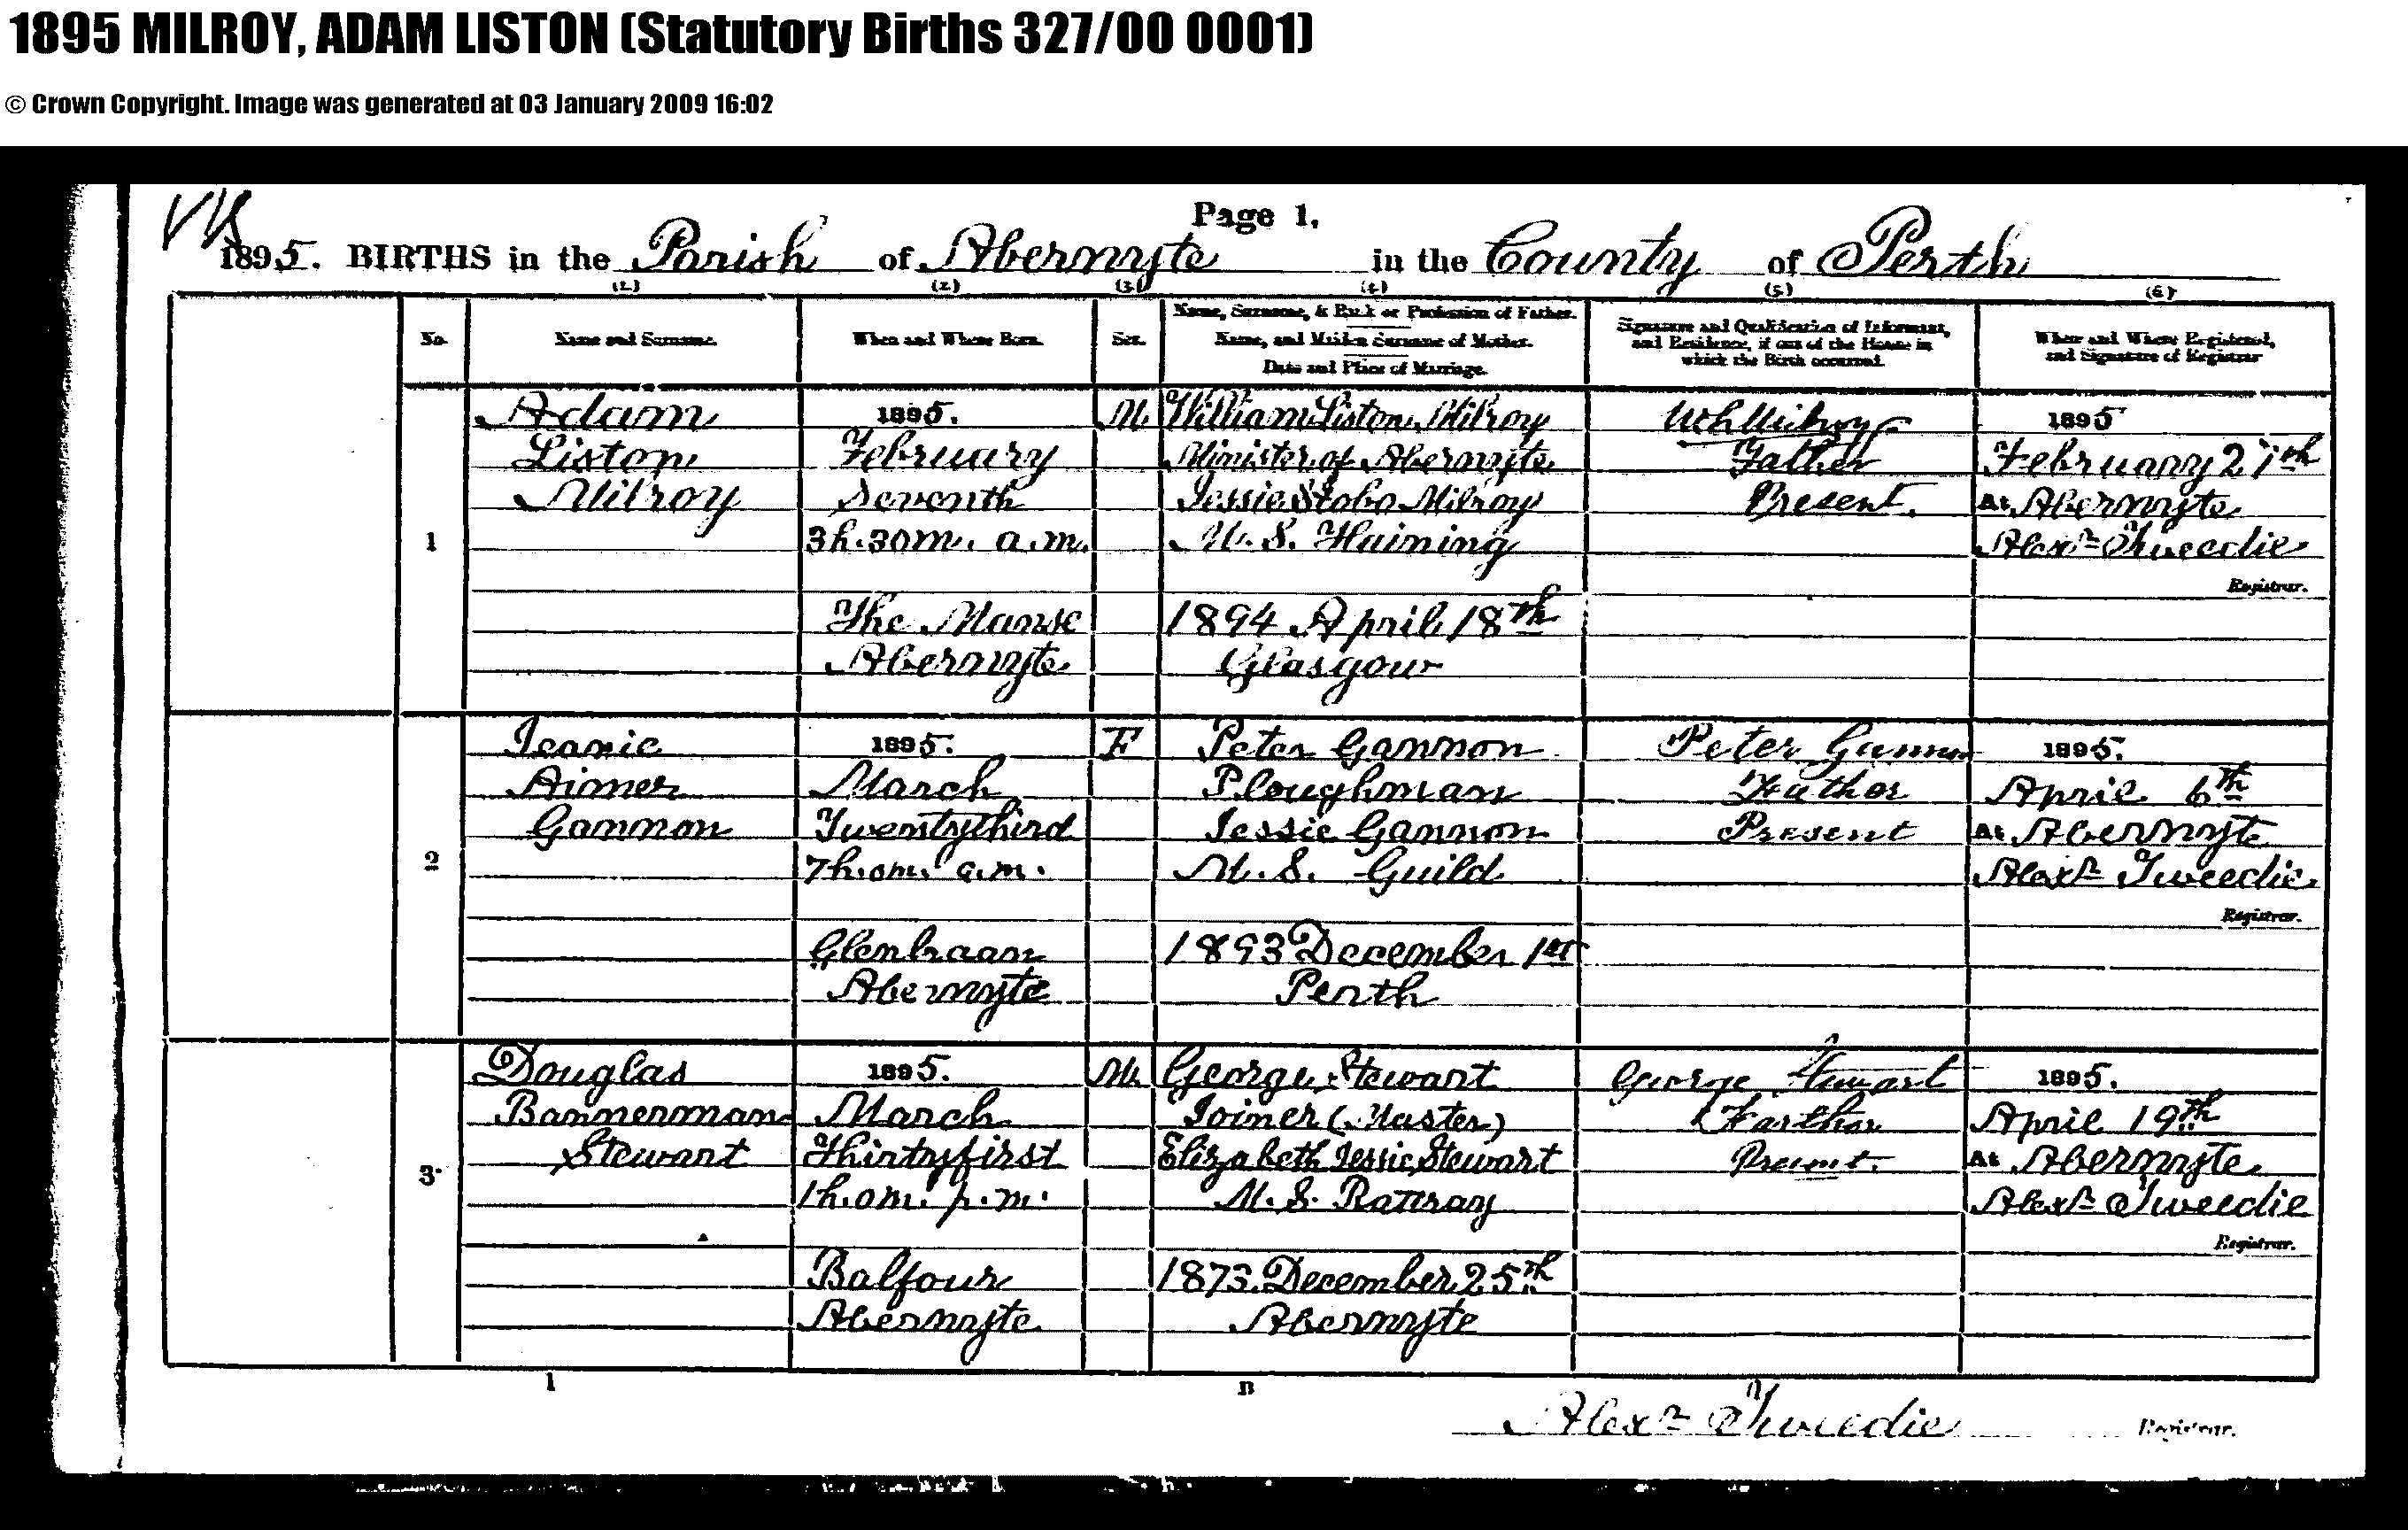 1895 MILROY, ADAM LISTON (Statutory Births 327/00 0001)
© Crown Copyright. Image was generated at 03 January 2009 16:02
Page 1.
1895. BIRTHS in the Parish of Abernyte in the County of Perth
(1.) (2.) (3.) (4.) (5.) (6.)
No. Name and Surname. When and Where Born. Sex. Name, Surname, & Rank or Profession of Father.
Name, and Maiden Surname of Mother.
Date and Place of Marriage.
Signature and Qualification of Informant,
and Residence, if out of the House in
which the Birth occurred.
When and Where Registered,
and Signature of Registrar
1
Adam
Liston
Milroy
1895.
February
Seventh
3h. 30m. a.m.
The Manse
Abernyte
M.
William Liston Milroy
Minister of Abernyte
Jessie Stobo Milroy
M.S. Haining
1894 April 18th
Glasgow
W L Milroy
Father
Present.
1895
February 27th
At Abernyte
Alexr Tweedie
Registrar.
2
Jeanie
Aimer
Gammon
1895.
March
Twentythird
7h. 0m. a.m.
Abernyte
F
Peter Gammon
Ploughman
Jessie Gammon
M.S. Guild
1893 December 1st
Perth
Peter Gammon
Father
Present
1895.
April 6th
At Abernyte
Alexr Tweedie
Registrar.
3
Douglas
Bannerman
Stewart
1895.
March
Thirtyfirst
1h. 0m. p.m.
Balfour
Abernyte
M.
George Stewart
Joiner (Master)
Elizabeth Jessie Stewart
M.S. Rattray
1873. December 25th
Abernyte
George Stewart
Farther
Present.
1895.
April 19th
At Abernyte
Alexr Tweedie
Registrar.
1 B
Alexr Tweedie Registrar.